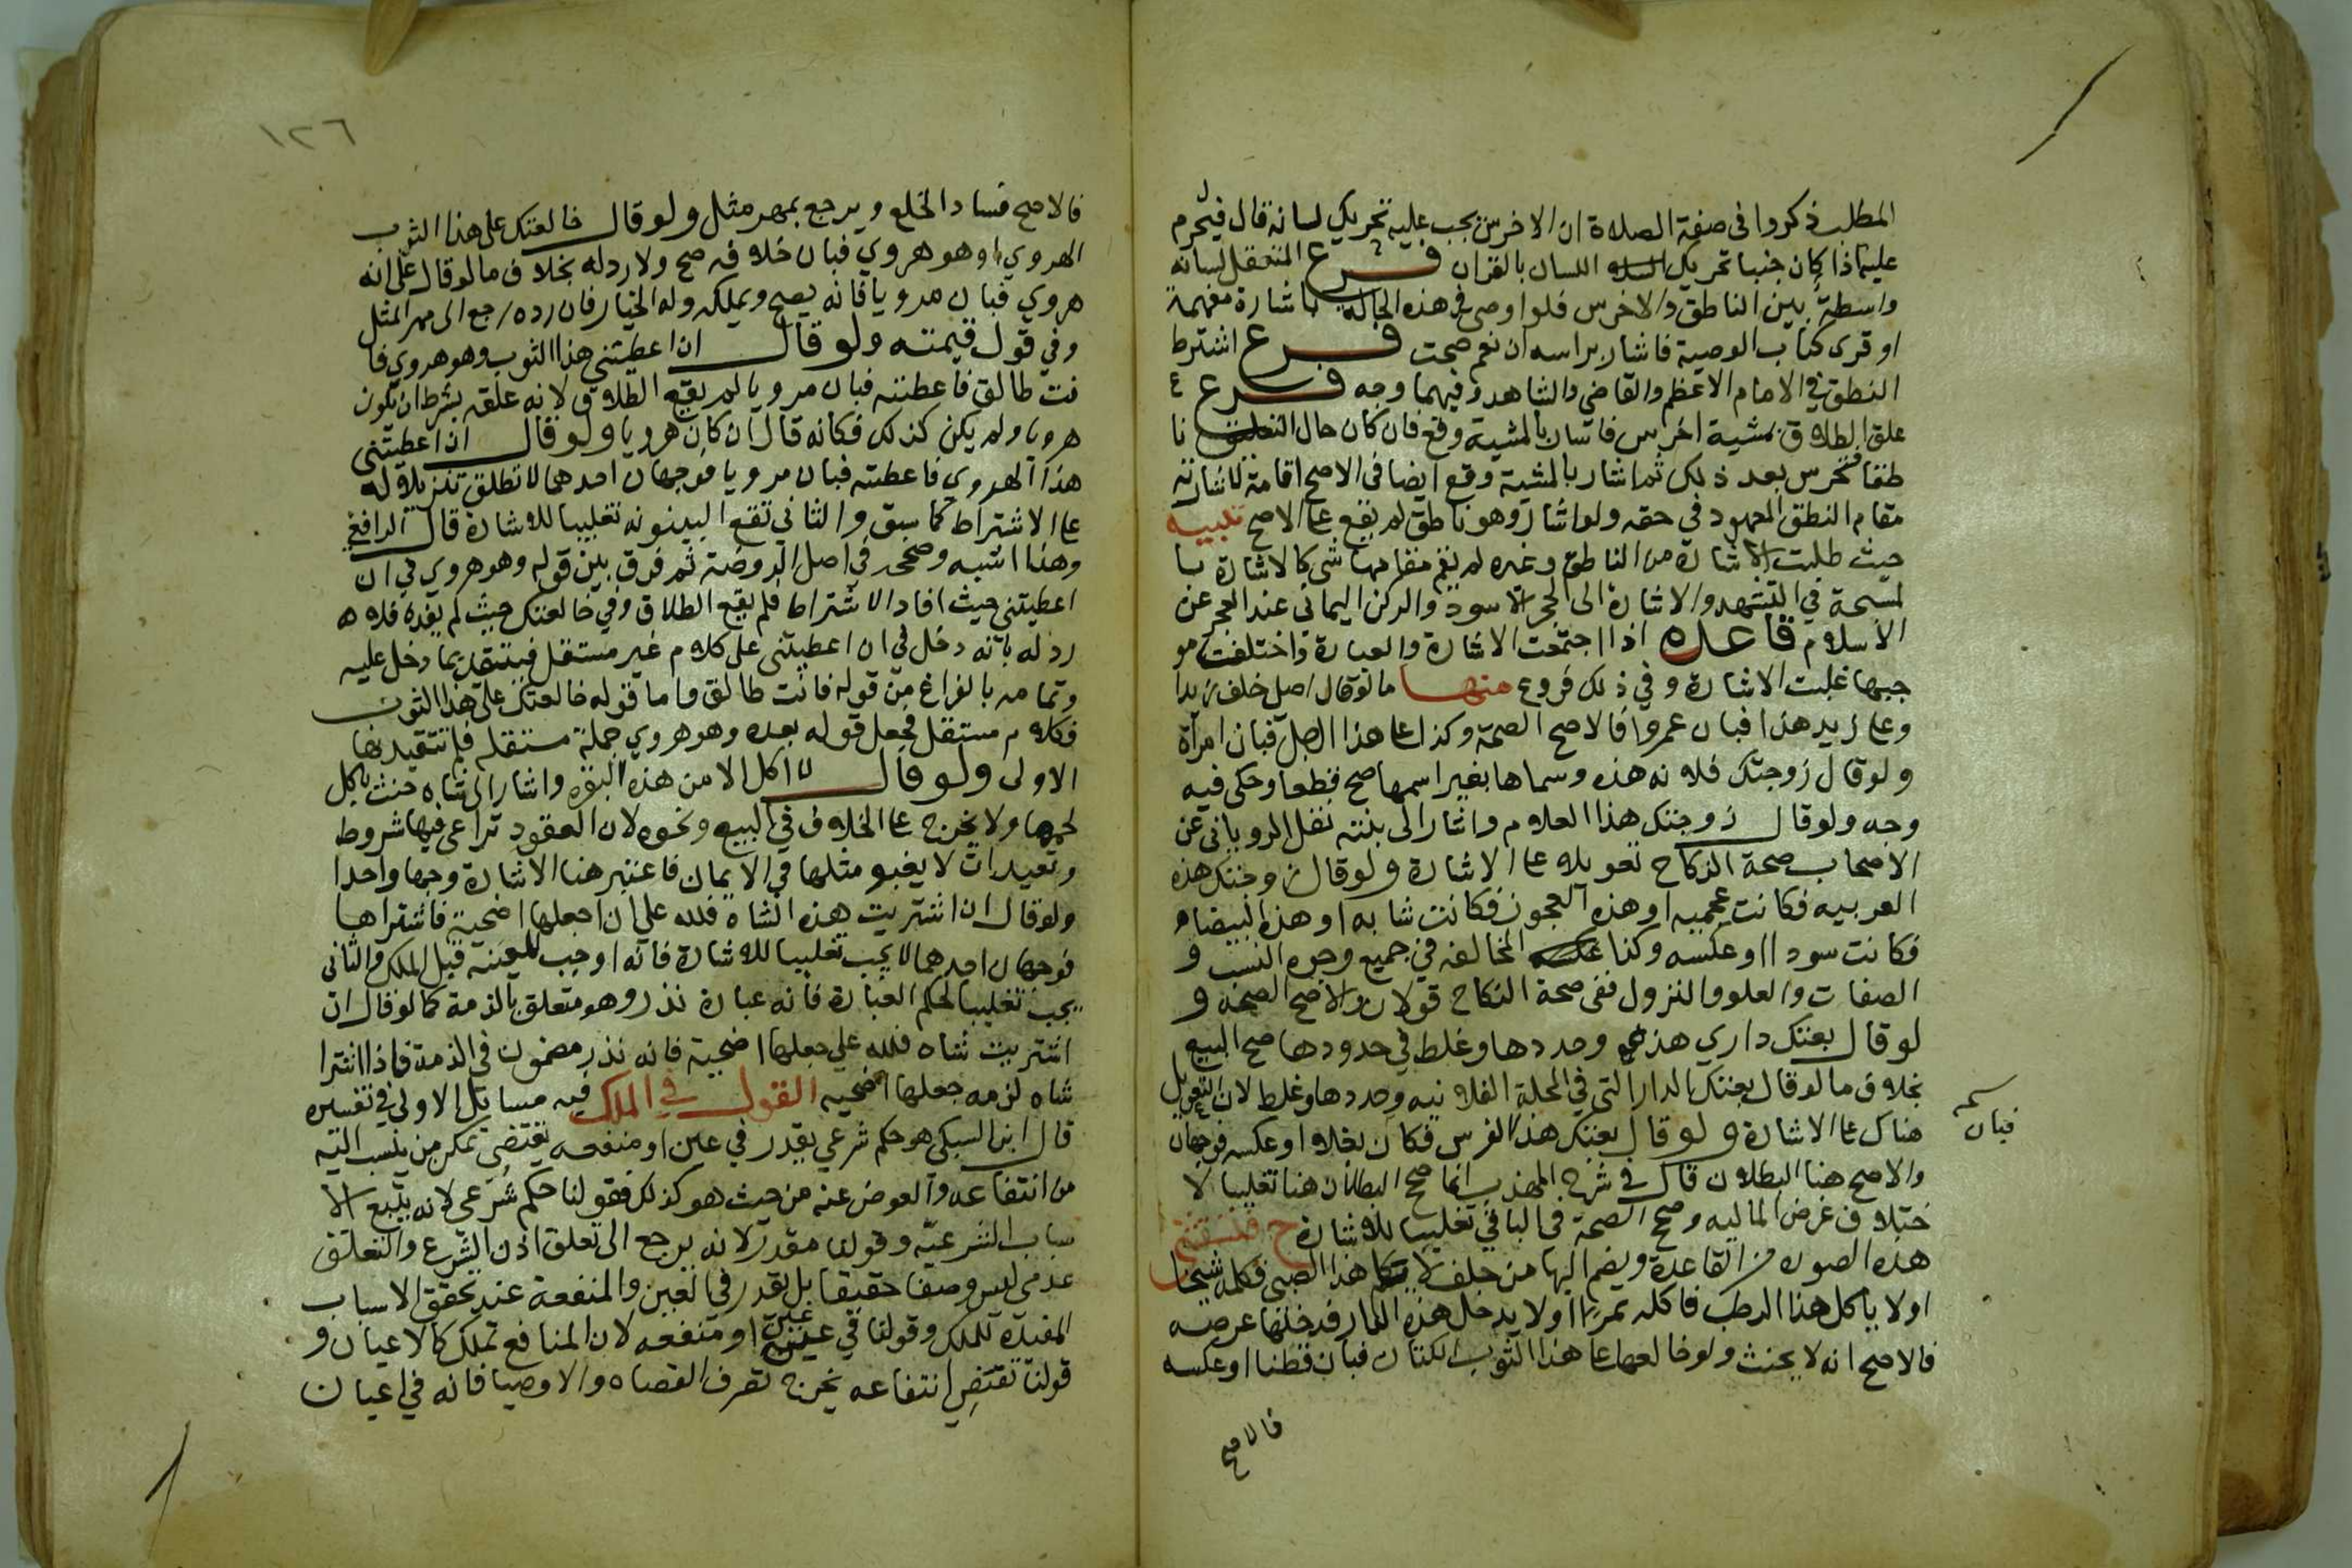 المطلب ذكروا في صفة الصلاة ان الاخرس يجب عليه تحريك لسانه قال فيحرم
عليه اذا كان جنبا تحريك اللسان بالقران فرع المتعقل لسانه
واسطة بين الناطق والاخرس فلو اوصى في هذه الحالة باشارة مفهمة
او قرى كتاب الوصية فاشار براسه ان نعم صحت فرع اشترط
النطق في الامام الاعظم والقاضي والشاهد وفيهما وجه فرع
علق الطلاق بمشية اخرس فاشار بالمشية وقع فان كان حال التعليق نا
طقا فخرس بعد ذلك ثم اشار بالمشية وقع ايضا في الاصح اقامة لاشارته
مقام النطق المعهود في حقه ولو اشار وهو ناطق لم يقع على الاصح تنبيه
حيث طلبت الاشارة من الناطق وغيره لم يقم مقامها شي كالاشارة با
لمسبحة في التشهد والاشارة الى الحجر الاسود والركن اليماني عند العجز عن
الاسلام قاعده اذا اجتمعت الاشارة والعبارة واختلفت مو
جبهما غلبت الاشارة وفي ذلك فروع منها ما لو قال اصلي خلف زيد ا
وعلى زيد هذا فبان عمروا فالاصح الصحة وكذا على هذا الرجل فبان امراة
ولو قال زوجتك فلانه هذه وسماها بغير اسمها صح قطعا وحكى فيه
وجه ولو قال زوجتك هذا الغلام واشار الى بنته نقل الروياني عن
الاصحاب صحة النكاح تعويلا على الاشارة ولو قال زوجتك هذه
العربيه فكانت عجميه او هذه العجوز فكانت شابه او هذه البيضاء
فكانت سودا او عكسه وكذا المخالفه في جميع وجوه النسب و
الصفات والعلو والنزول ففي صحة النكاح قولان والاصح الصحة و
لو قال بعتك داري هذه وحددها وغلط في حدودها صح البيع
بخلاف ما لو قال بعتك الدار التي في المحلة الفلانيه وحددها وغلط لان التعويل
هناك على الاشارة ولو قال بعتك هذا الفرس فكان بغلا او عكسه فوجهان
فبان
والاصح هنا البطلان قال في شرح المهذب انما صح البطلان هنا تغليبا لا
ختلاف غرض الماليه وصح الصحة في الباقي تغليبا للاشارة ح فتستثنى
هذه الصوره من القاعدة ويضم اليها من حلف لا يكلم هذا الصبي فكلمه شيخا
او لا ياكل هذا الرطب فاكله تمرا او لا يدخل هذه الدار فدخلها عرصه
فالاصح انه لا يحنث ولو خالعها على هذا الثوب الكتان فبان قطنا او عكسه
فالاصح
١٢٦
فالاصح فساد الخلع ويرجع بمهر مثل ولو قال خالعتك على هذا الثوب
الهروي او هو هروي فبان خلافه صح ولا رد له بخلاف ما لو قال على انه
هروي فبان مرويا فانه يصح ويملكه وله الخيار فان رده رجع الى مهر المثل
وفي قول قيمته ولو قال ان اعطيتني هذا الثوب وهو هروي فا
نت طالق فاعطته فبان مرويا لم يقع الطلاق لانه علقه بشرط ان يكون
هرويا ولم يكن كذلك فكانه قال ان كان هرويا ولو قال ان اعطيتني
هذا الهروي فاعطته فبان مرويا فوجهان احدهما لا تطلق تنزيلا له
على الاشتراط كما سبق والثاني تقع البينونه تغليبا للاشارة قال الرافعي
وهذا اشبه وصححه في اصل الروضة ثم فرق بين قوله وهو هروي في ان
اعطيتني حيث افاد الاشتراط فلم يقع الطلاق وفي خالعتك حيث لم يفده فلا
رد له بانه دخل في ان اعطيتني على كلام غير مستقل فيتقيد بما دخل عليه
وتمامه بالفراغ من قوله فانت طالق واما قوله خالعتك على هذا الثوب
فكلام مستقل فجعل قوله بعده وهو هروي جملة مستقله فلم تتقيد بها
الاولى ولو قال لا اكل الا من هذه البقره واشار الى شاه حنث باكل
لحمها ولا يخرج على الخلاف في البيع ونحوه لان العقود تراعى فيها شروط
وتعبدات لا يعتبر مثلها في الايمان فاعتبر هنا الاشارة وجها واحدا
ولو قال ان اشتريت هذه الشاة فلله علي ان اجعلها اضحية فاشتراها
فوجهان احدهما لا يجب تغليبا للاشارة فانه اوجب المعينه قبل الملك والثاني
يجب تغليبا لحكم العبارة فانه عبارة نذر وهو متعلق بالذمة كما لو قال ان
اشتريت شاه فلله علي جعلها اضحية فانه نذر مضمون في الذمة فاذا اشترا
شاه لزمه جعلها اضحيه القول في الملك فيه مسايل الاولى في تفسيره
قال ابن السبكي هو حكم شرعي يقدر في عين او منفعه يقتضي تمكن من ينسب اليه
من انتفاعه والعوض عنه من حيث هو كذلك فقولنا حكم شرعي لانه يتبع الا
سباب الشرعيه وقولنا مقدر لانه يرجع الى تعلق اذن الشرع والتعلق
عدمي ليس وصفا حقيقيا بل يقدر في العين والمنفعة عند تحقق الاسباب
المفيدة للملك وقولنا في عين او منفعه لان المنافع تملك كالاعيان و
قولنا يقتضي انتفاعه يخرج تصرف القضاه والاوصيا فانه في اعيان